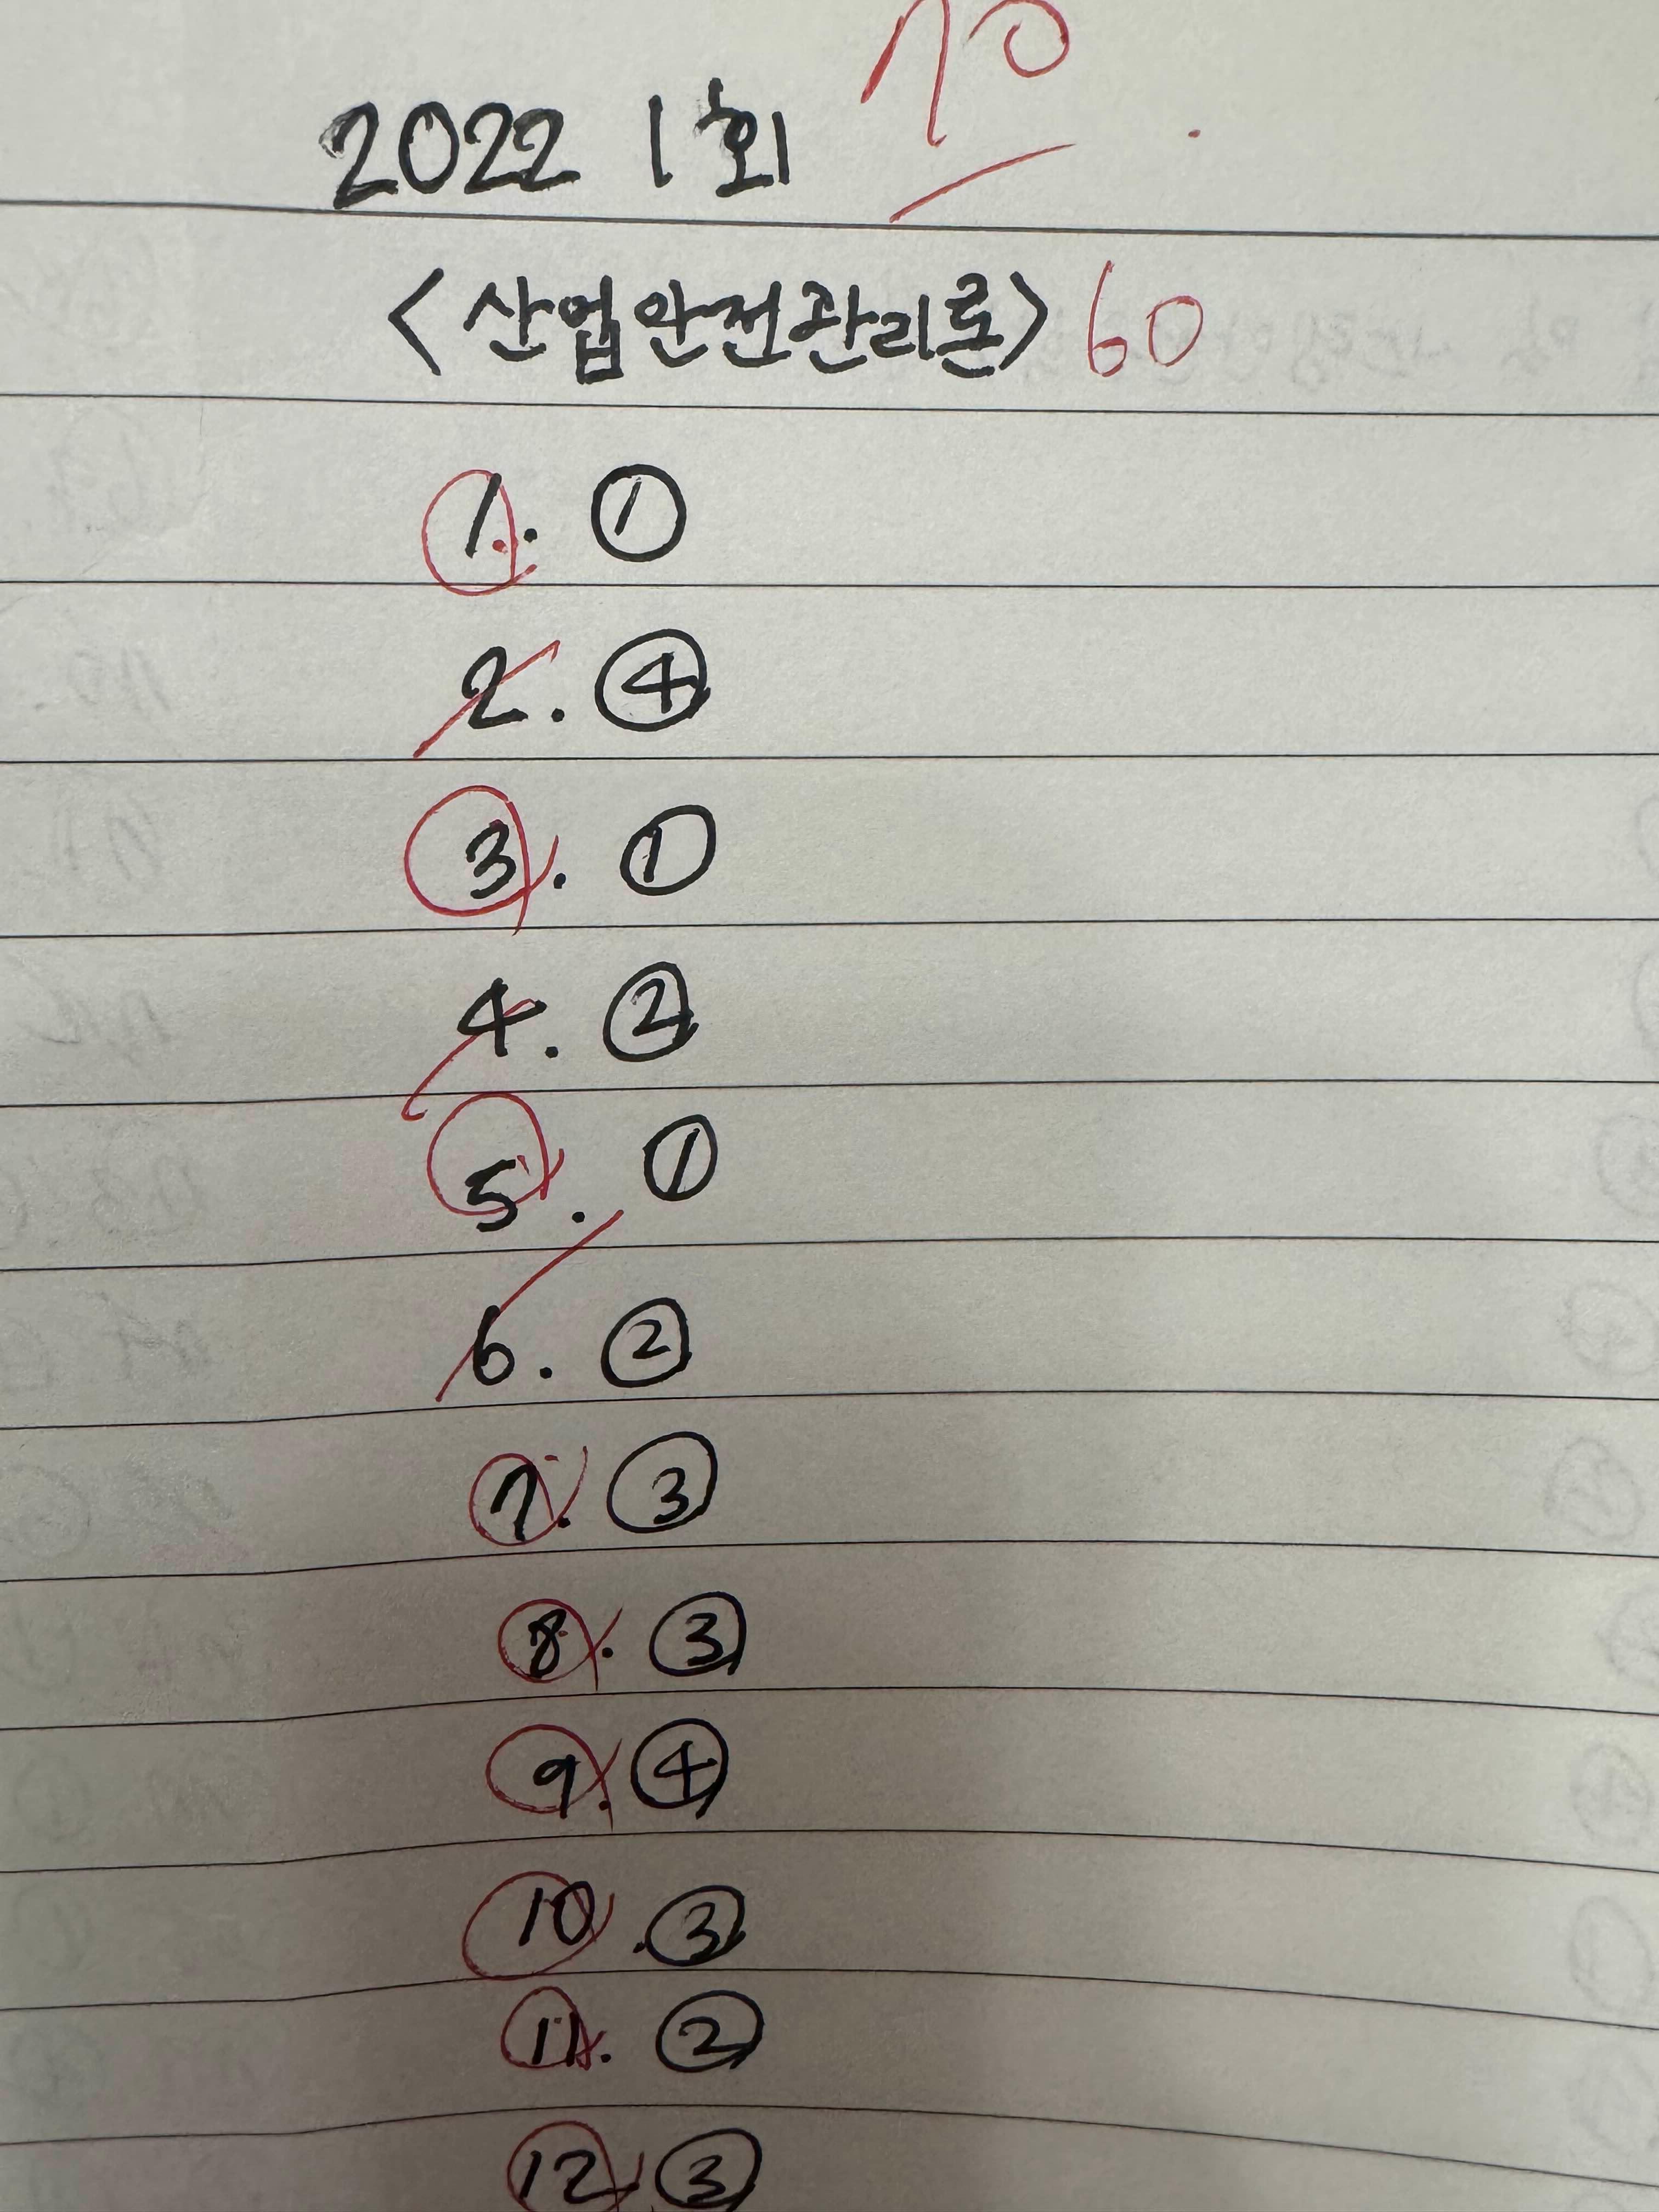 70
2022 1회
<산업안전관리론> 60
1. ①
2. ④
3. ①
4. ②
5. ①
6. ②
7. ③
8. ③
9. ④
10. ③
11. ②
12. ③